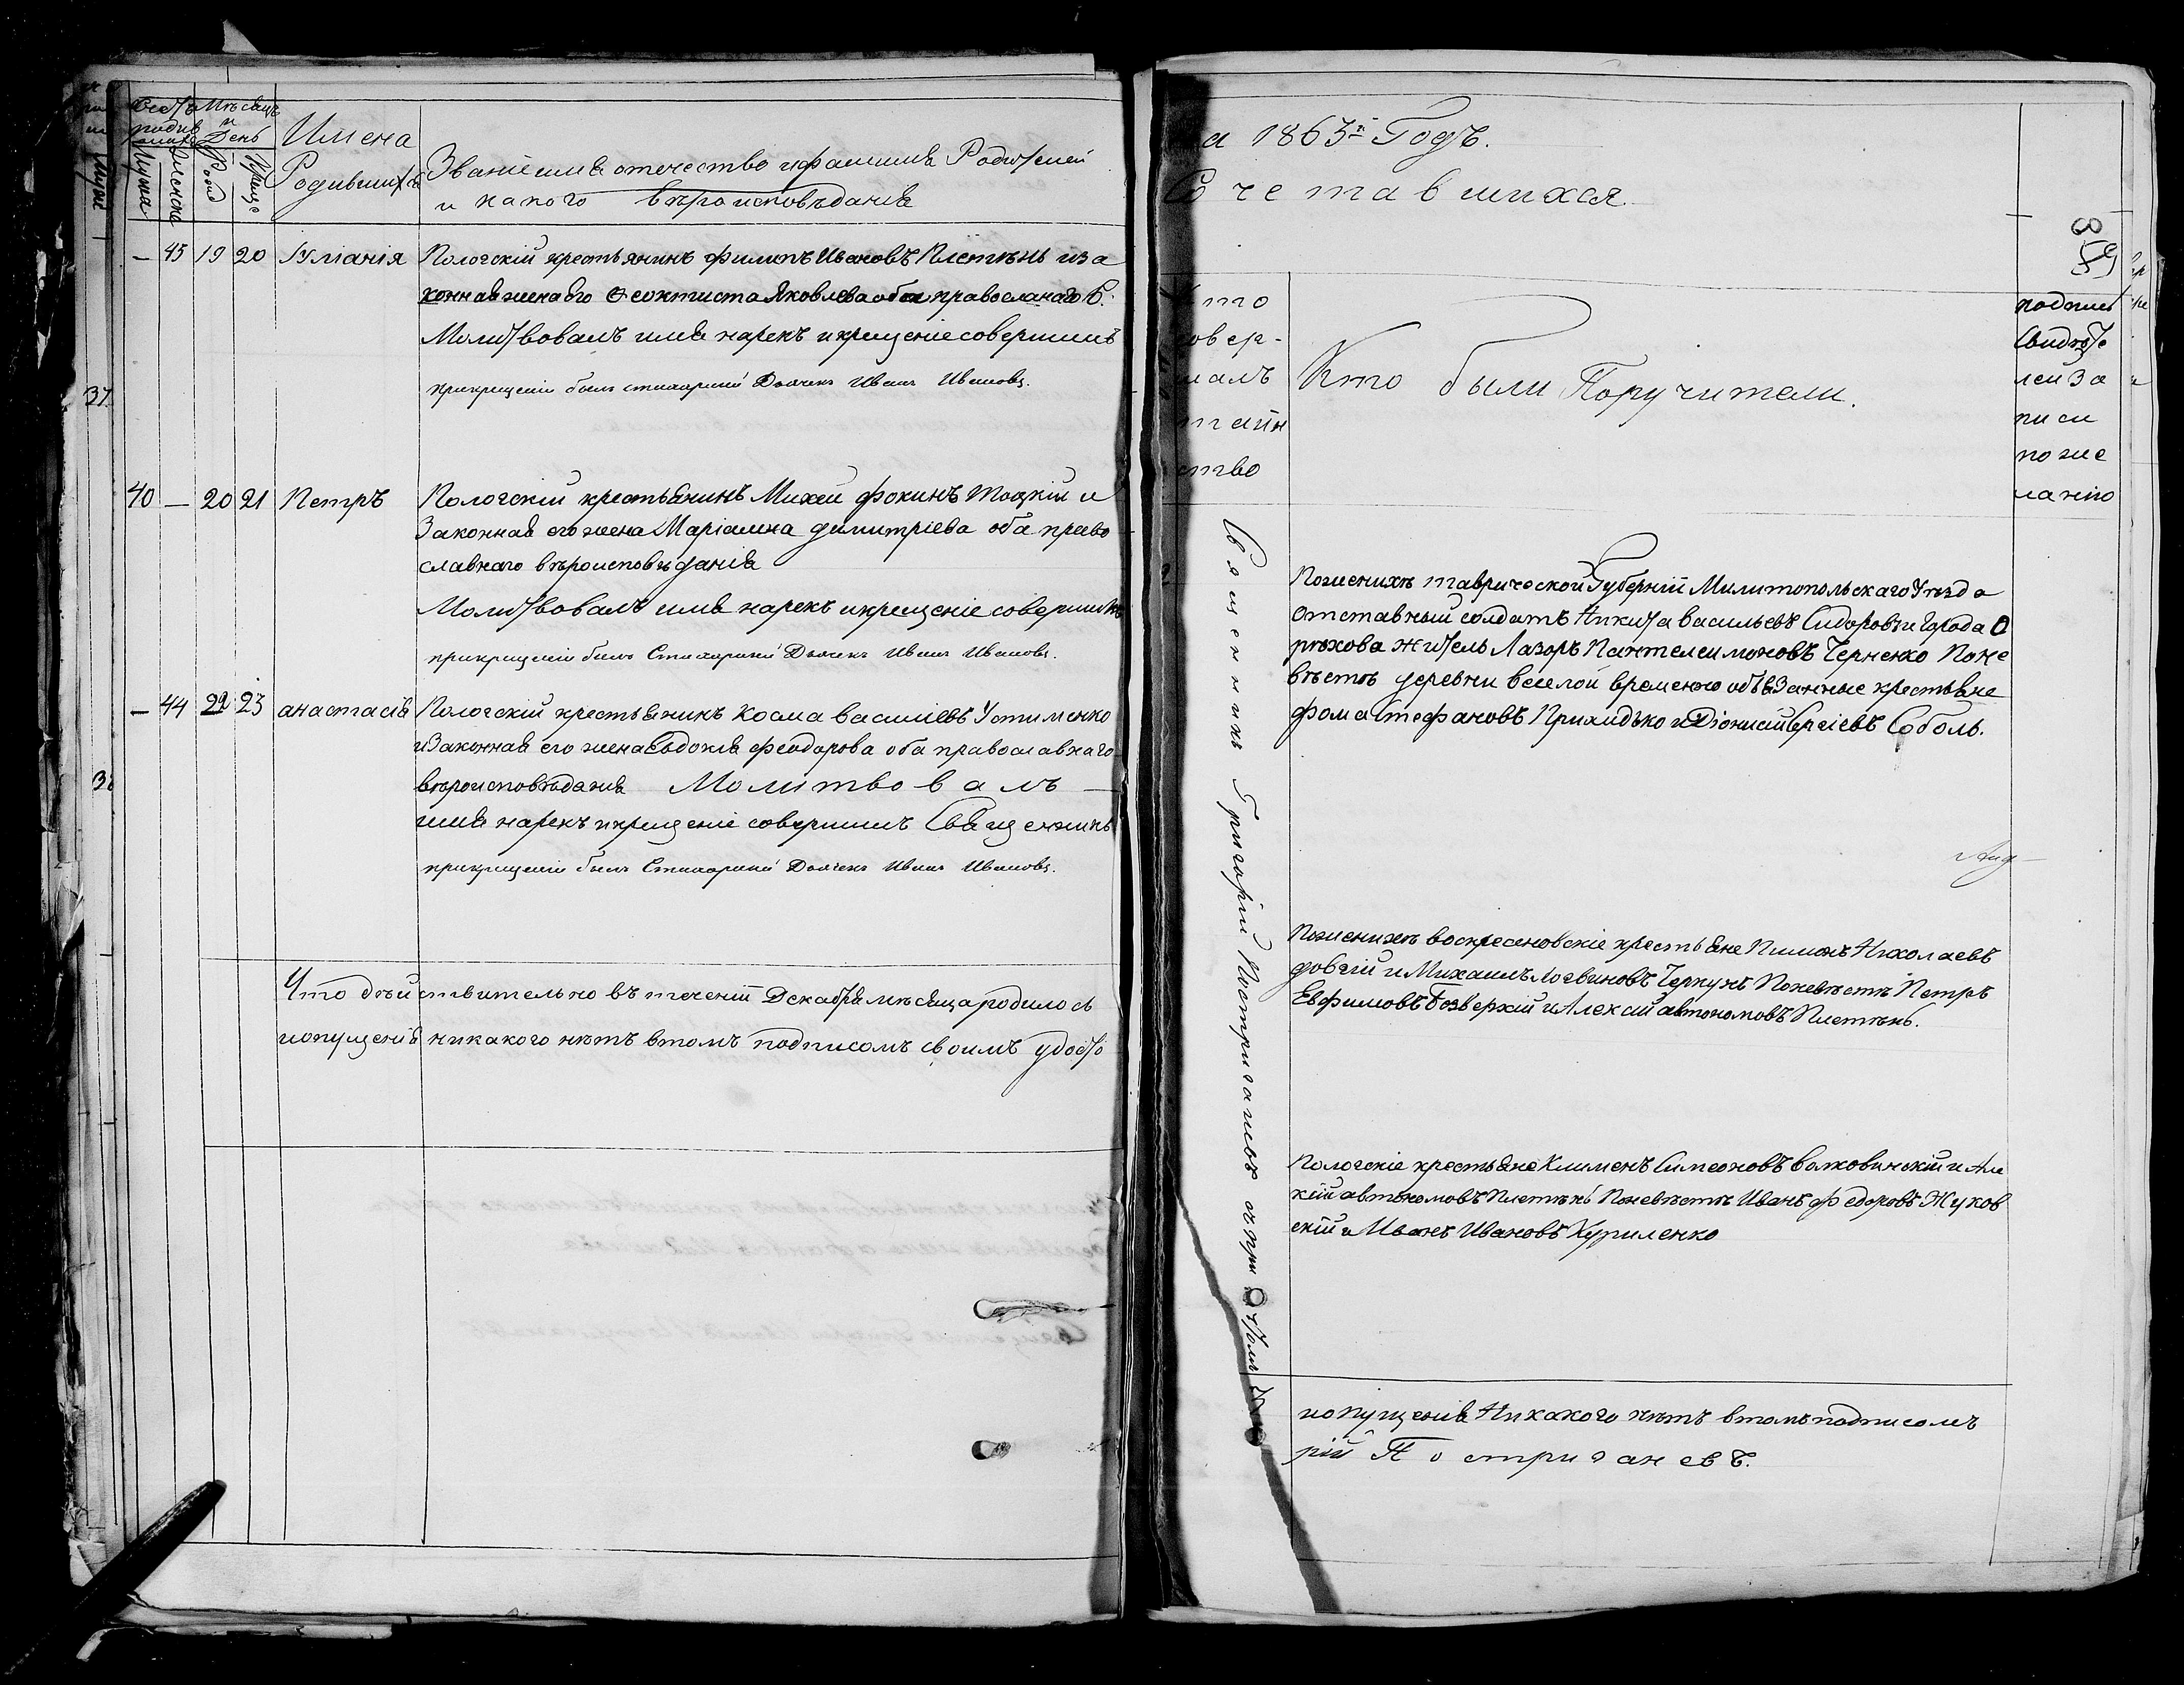 Имена
Родившихъ
Званіе имя отечество и фамилія Родителей
и какого вѣроисповѣданія
— 43 19 20 Іуліанія Пологскій крестьянинъ Филипъ Ивановъ Плетѣнь и за
конная жена его Ѳеоктиста Яковлева оба православнаго В.
Молитвовалъ имя нарекъ и крещеніе совершилъ
при крещеніи былъ стихарный Дьячекъ Иванъ Ивановъ.
37
40 — 20 21 Петръ Пологскій крестьянинъ Михей Фокинъ Тоцкій и
Законная его жена Маріамна Димитріева оба право
славнаго вѣроисповѣданія
Молитвовалъ имя нарекъ и крещеніе совершилъ
при крещеніи былъ Стихарный Дьячекъ Иванъ Ивановъ.
— 44 22 23 анастасія Пологскій крестьянинъ Косма василіевъ Устименко
и Законная его жена Евдокія Феодорова оба православнаго
вѣроисповѣданія Молитвовалъ —
имя нарекъ и крещеніе совершилъ Священникъ
при крещеніи былъ Стихарный Дьячекъ Иванъ Ивановъ.
Что дѣйствительно въ теченіи Декабря мѣсяца родилось
и опущенія никакого нѣтъ в томъ подписомъ своимъ удосто
а 1863й Годъ.
Сочетавшихся.
85
Кто
совер-
шалъ
таин
ство
Кто были Поручители.
подпись
свидѣте
лей За
писи
по же
ланію
Священникъ Григорій Постригачевъ
По женихѣ таврической Губерніи Милитопольскаго Уѣзда
Отставный солдатъ Никита васильевъ Сидоровъ и Города О
рѣхова житель Лазоръ Пантелеимоновъ Черненко По не
вѣстѣ деревни веселой временно обязанные крестьяне
Фома Стефановъ Приходько и Діонисій Сергіевъ Соболь.
По женихѣ воскресеновскіе крестьяне Пименъ Николаевъ
довгій и Михаилъ Логвиновъ Черкунъ По невѣстѣ Петръ
Евфимовъ Безверхій и Алексій автономовъ Плетѣнь.
Пологскіе крестьяне Клименъ Симеоновъ волковинскій и Але
ксій автономовъ Плетѣнь По невѣстѣ Иванъ Федоровъ Жуков
скій и Иванъ Ивановъ Куриленко
и опущенія Никакого нѣтъ в томъ подписомъ
рій Постриганевъ.